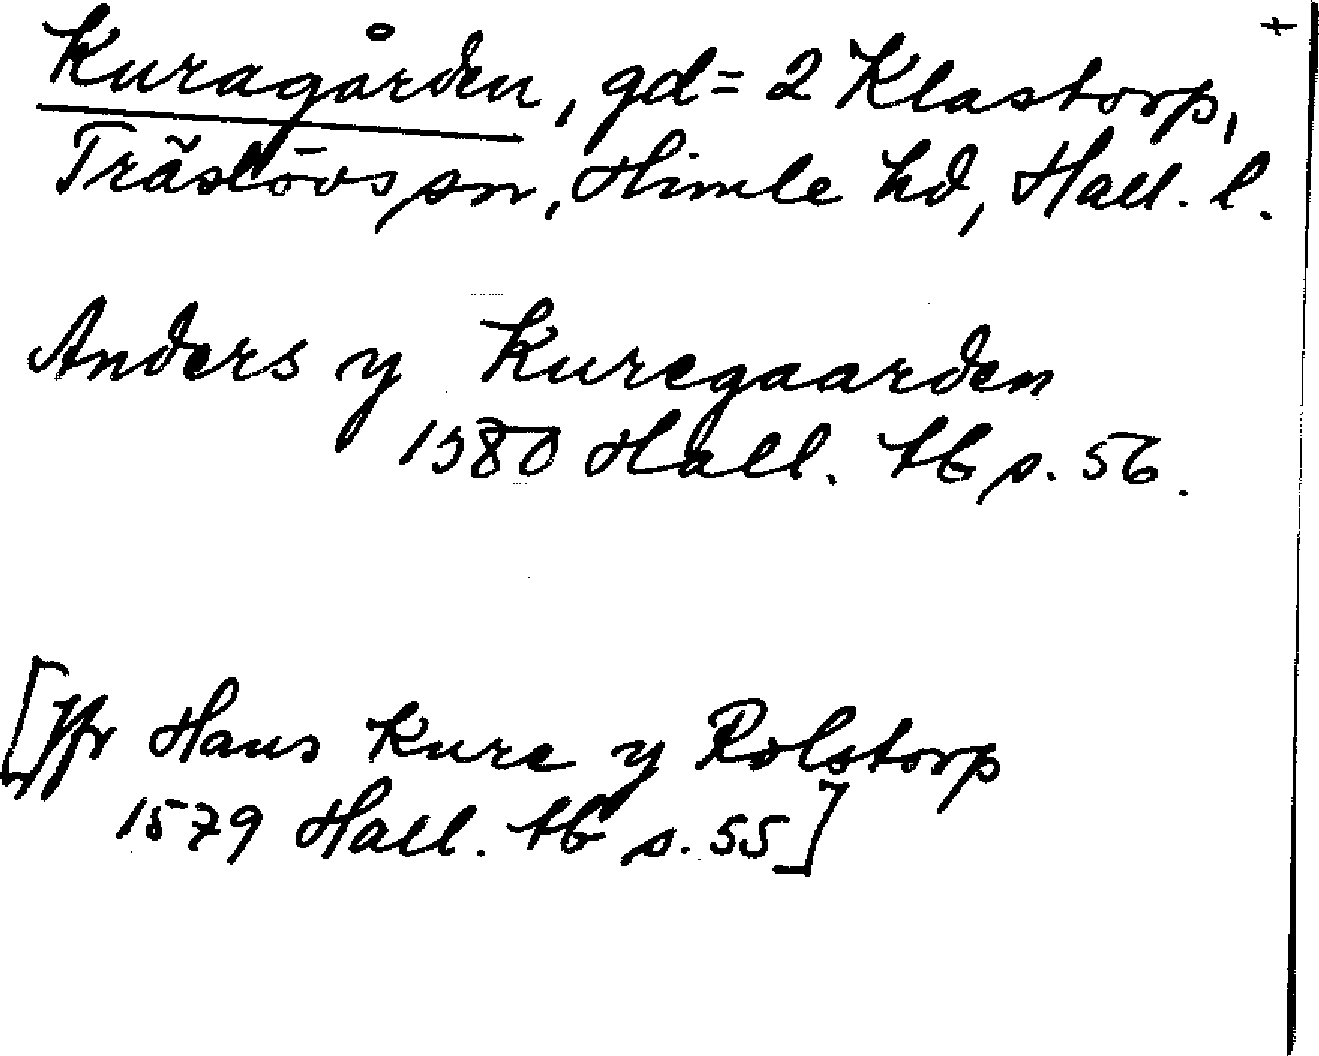 Kuragården, gd = 2 Klastorp, +
Träslövs sn, Himle hd, Hall. l.
Anders y Kuregaarden
1580 Hall. tb s. 56.
[Jfr Hans Kure y Rolstorp
1579 Hall. tb s. 55]